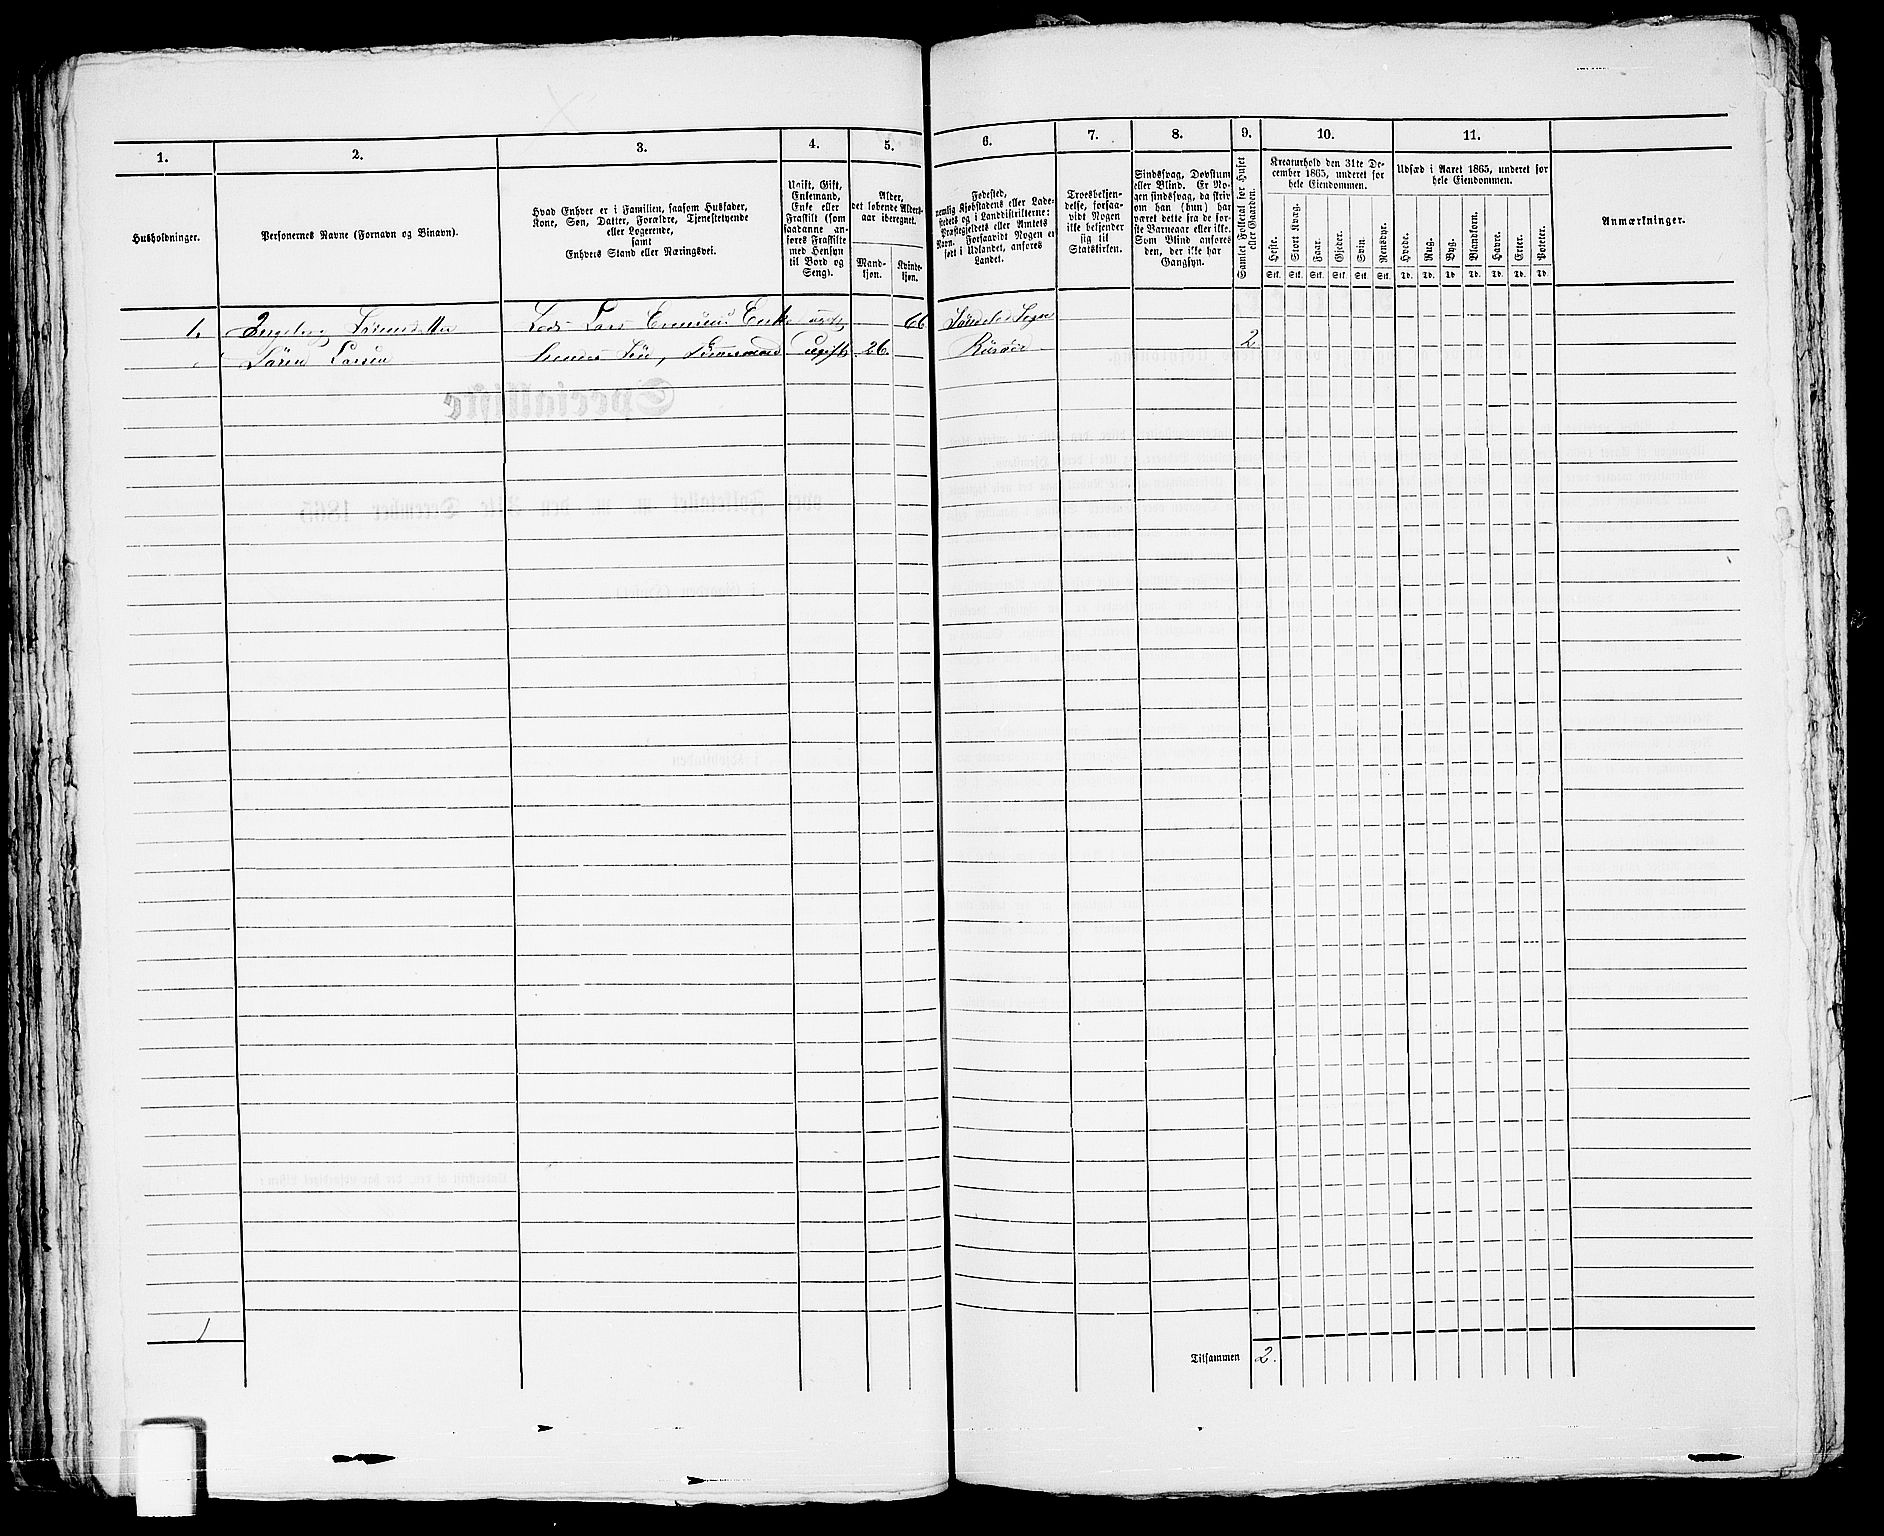 1.
2.
3.
4.
5.
6.
7.
8.
9.
10.
11.
Husholdninger.
Personernes Navne (Fornavn og Binavn).
Hvad Enhver er i Familien, saasom Husfader,
Kone, Søn, Datter, Forældre, Tjenestetyende
eller Logerende,
samt
Enhvers Stand eller Næringsvei.
Ugift, Gift,
Enkemand,
Enke eller
Fraskilt (som
saadanne an-
føres Fraskilte
med Hensyn
til Bord og
Seng).
Alder,
det løbende Alders-
aar iberegnet.
Mand-
kjøn.
Kvinde-
kjøn.
Fødested,
nemlig Kjøbstadens eller Lade-
stedets og i Landdistrikterne:
Præstegjeldets eller Amtets
Navn. Forsaavidt Nogen er
født i Udlandet, anføres
Landet.
Troesbekjen-
delse, forsaa-
vidt Nogen
ikke bekjender
sig til
Statskirken.
Sindssvag, Døvstum
eller Blind. Er No-
gen sindssvag, da skriv
om han (hun) har
været dette fra de før-
ste Barneaar eller ikke.
Som Blind anføres
den, der ikke har
Gangsyn.
Samlet Folketal for Huset
eller Gaarden.
Kreaturhold den 31te De-
cember 1865, underet for
hele Eiendommen.
Heste.
Stort Kvæg.
Faar.
Gjeder.
Svin.
Rensdyr.
Stk. Stk. Stk. Stk. Stk. Stk.
Udsæd i Aaret 1865, underet for
hele Eiendommen.
Hvede.
Rug.
Byg.
Blandkorn.
Havre.
Erter.
Poteter.
Td. Td. Td. Td. Td. Td. Td.
Anmærkninger.
1. Lods Lars Enke 66 Sogn
Søren Larsen Ugift 26 Risøer 2
1
Tilsammen 2.